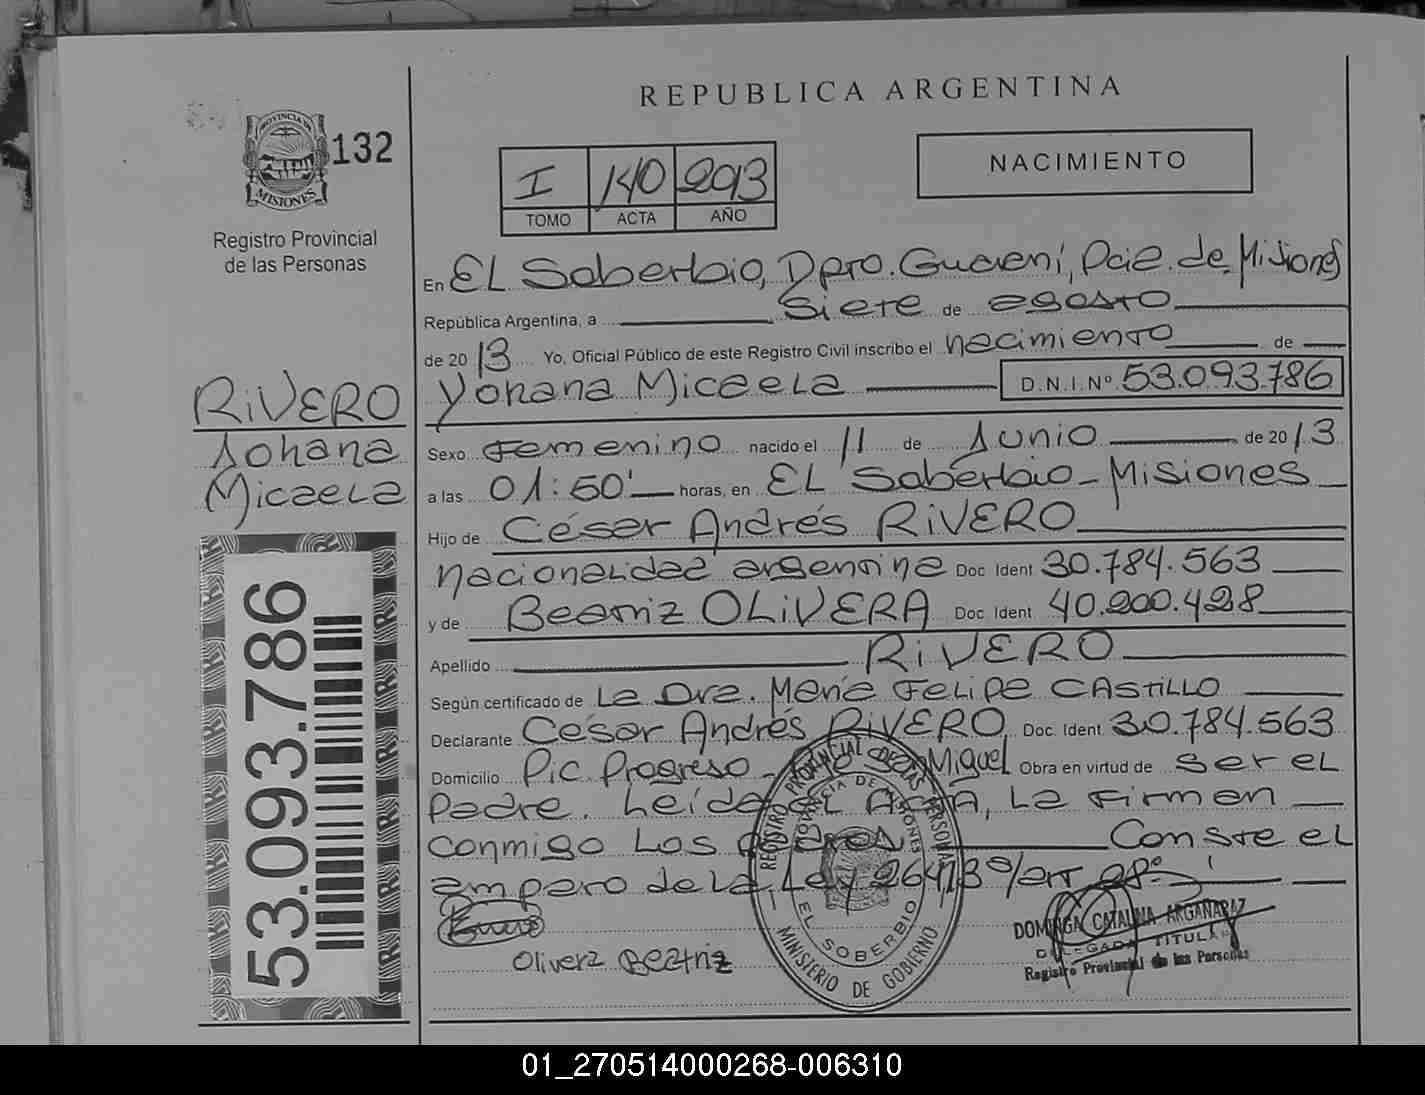 REPUBLICA ARGENTINA
PROVINCIA DE
MISIONES
132
Registro Provincial
de las Personas
I 140 2013
TOMO ACTA AÑO
NACIMIENTO
En EL Soberbio, Dpto. Guaraní, Pcia. de Misiones
República Argentina, a siete de agosto
de 2013 Yo, Oficial Público de este Registro Civil inscribo el nacimiento de
Yohana Micaela D.N.I.Nº 53.093.786
RIVERO
Johana
Micaela
Sexo Femenino nacido el 11 de Junio de 2013
a las 01:50' horas, en EL Soberbio - Misiones
Hijo de César Andrés RIVERO
nacionalidad argentina Doc Ident 30.784.563
y de Beatriz OLIVERA Doc Ident 40.200.428
Apellido RIVERO
Según certificado de La Dra. María Felipe CASTILLO
Declarante César Andrés RIVERO Doc. Ident 30.784.563
Domicilio Pic. Progreso - Miguel Obra en virtud de ser el
Padre. Leída el Acta, la firman
conmigo los Consте el
amparo de la Ley 26413 art 28º
Olivera Beatriz
53.093.786
REGISTRO PROVINCIAL DE LAS PERSONAS
PROVINCIA DE MISIONES
EL SOBERBIO
MINISTERIO DE GOBIERNO
DOMINGA CATALINA ARGAÑARAZ
DELEGADA TITULAR
Registro Provincial de las Personas
01_270514000268-006310